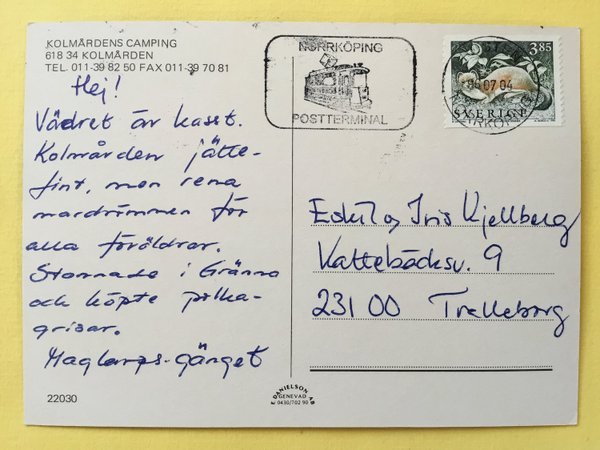 KOLMÅRDENS CAMPING
618 34 KOLMÅRDEN
TEL. 011-39 82 50 FAX 011-39 70 81
Hej!
Vädret är kasst.
Kolmården jätte-
fint, men rena
mardrömmen för
alla föräldrar.
Stannade i Gränna
och köpte polka-
grisar.
Maglarps-gänget
22030
NORRKÖPING
POSTTERMINAL
3.85
07 04
SVERIGE
Eskil o, Iris Kjellberg
Vattebäcksv. 9
231 00 Trelleborg
E DANIELSON AB
GENEVAD
0430/702 90